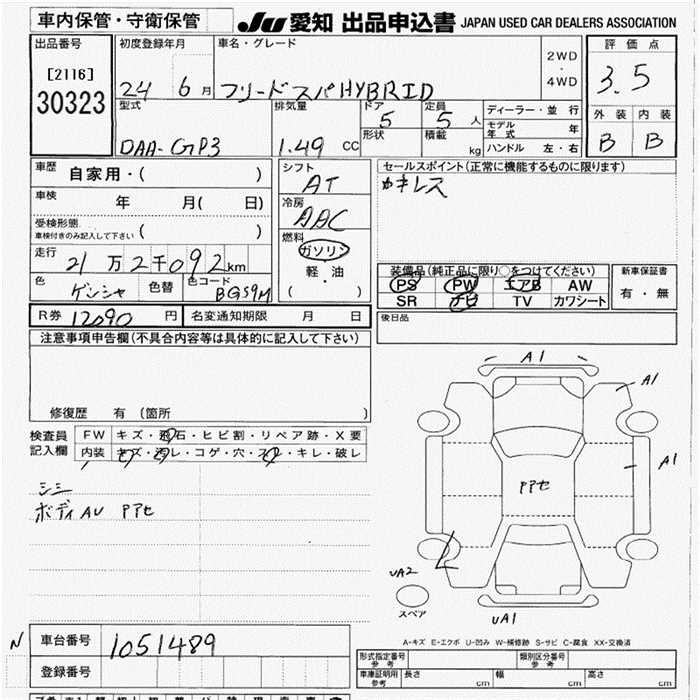 車内保管・守衛保管
JU 愛知 出品申込書 JAPAN USED CAR DEALERS ASSOCIATION
出品番号
[2116]
30323
初度登録年月
24 6月
車名・グレード
フリードスパHYBRID
2WD
・
4WD
評価点
3.5
外装 内装
B B
型式
DAA-GP3
排気量
1.49 CC
ドア
5
形状
定員
5人
積載
kg
ディーラー・並行
モデル年式 年
ハンドル 左・右
車歴
自家用・( )
車検
年 月( 日)
受検形態
車検付きのみ記入して下さい ( )
走行
21万2千092km
色
ゲンシャ
色替
色コード
BG59M
シフト
AT
冷房
AAC
燃料
ガソリン
・
軽・油
( )
セールスポイント(正常に機能するものに限ります)
カギレス
装備品(純正品に限り○をつけてください)
PS PW エアB AW
SR ナビ TV カワシート
新車保証書
有・無
後日品
R券 12090 円
名変通知期限 月 日
注意事項申告欄(不具合内容等は具体的に記入して下さい)
修復歴 有 (箇所 )
検査員
記入欄
FW キズ・飛石・ヒビ割・リペア跡・X要
内装 キズ・・コゲ・穴・・キレ・破レ
シミ
ボディAU PPセ
A1
A1
A1
PPセ
UA2
スペア
UA1
A-キズ E-エクボ U-凹み W-補修跡 S-サビ C-腐食 XX-交換済
N
車台番号
1051489
登録番号
形式指定番号
参考
類別区分番号
参考
車庫証明用
参考
長さ cm
幅 cm
高さ cm